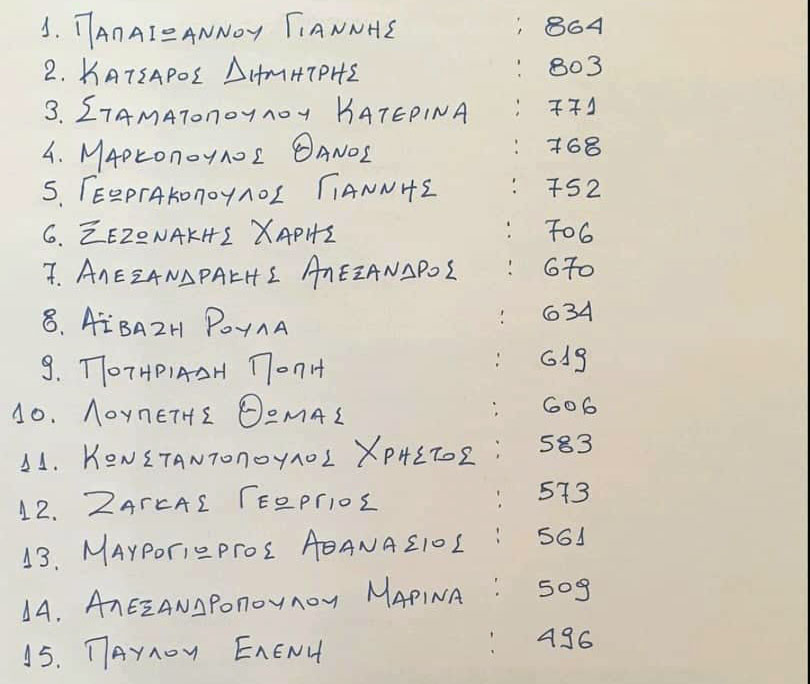 1. ΠΑΠΑΙΩΑΝΝΟΥ ΓΙΑΝΝΗΣ : 864
2. ΚΑΤΣΑΡΟΣ ΔΗΜΗΤΡΗΣ : 803
3. ΣΤΑΜΑΤΟΠΟΥΛΟΥ ΚΑΤΕΡΙΝΑ : 771
4. ΜΑΡΚΟΠΟΥΛΟΣ ΘΑΝΟΣ : 768
5. ΓΕΩΡΓΑΚΟΠΟΥΛΟΣ ΓΙΑΝΝΗΣ : 752
6. ΞΕΖΩΝΑΚΗΣ ΧΑΡΗΣ : 706
7. ΑΛΕΞΑΝΔΡΑΚΗΣ ΑΛΕΞΑΝΔΡΟΣ : 670
8. ΑΪΒΑΖΗ ΡΟΥΛΑ : 634
9. ΠΟΤΗΡΙΑΔΗ ΠΟΠΗ : 619
10. ΛΟΥΠΕΤΗΣ ΘΩΜΑΣ : 606
11. ΚΩΝΣΤΑΝΤΟΠΟΥΛΟΣ ΧΡΗΣΤΟΣ : 583
12. ΖΑΓΚΑΣ ΓΕΩΡΓΙΟΣ : 573
13. ΜΑΥΡΟΓΙΩΡΓΟΣ ΑΘΑΝΑΣΙΟΣ : 561
14. ΑΛΕΞΑΝΔΡΟΠΟΥΛΟΥ ΜΑΡΙΝΑ : 509
15. ΠΑΥΛΟΥ ΕΛΕΝΗ : 496